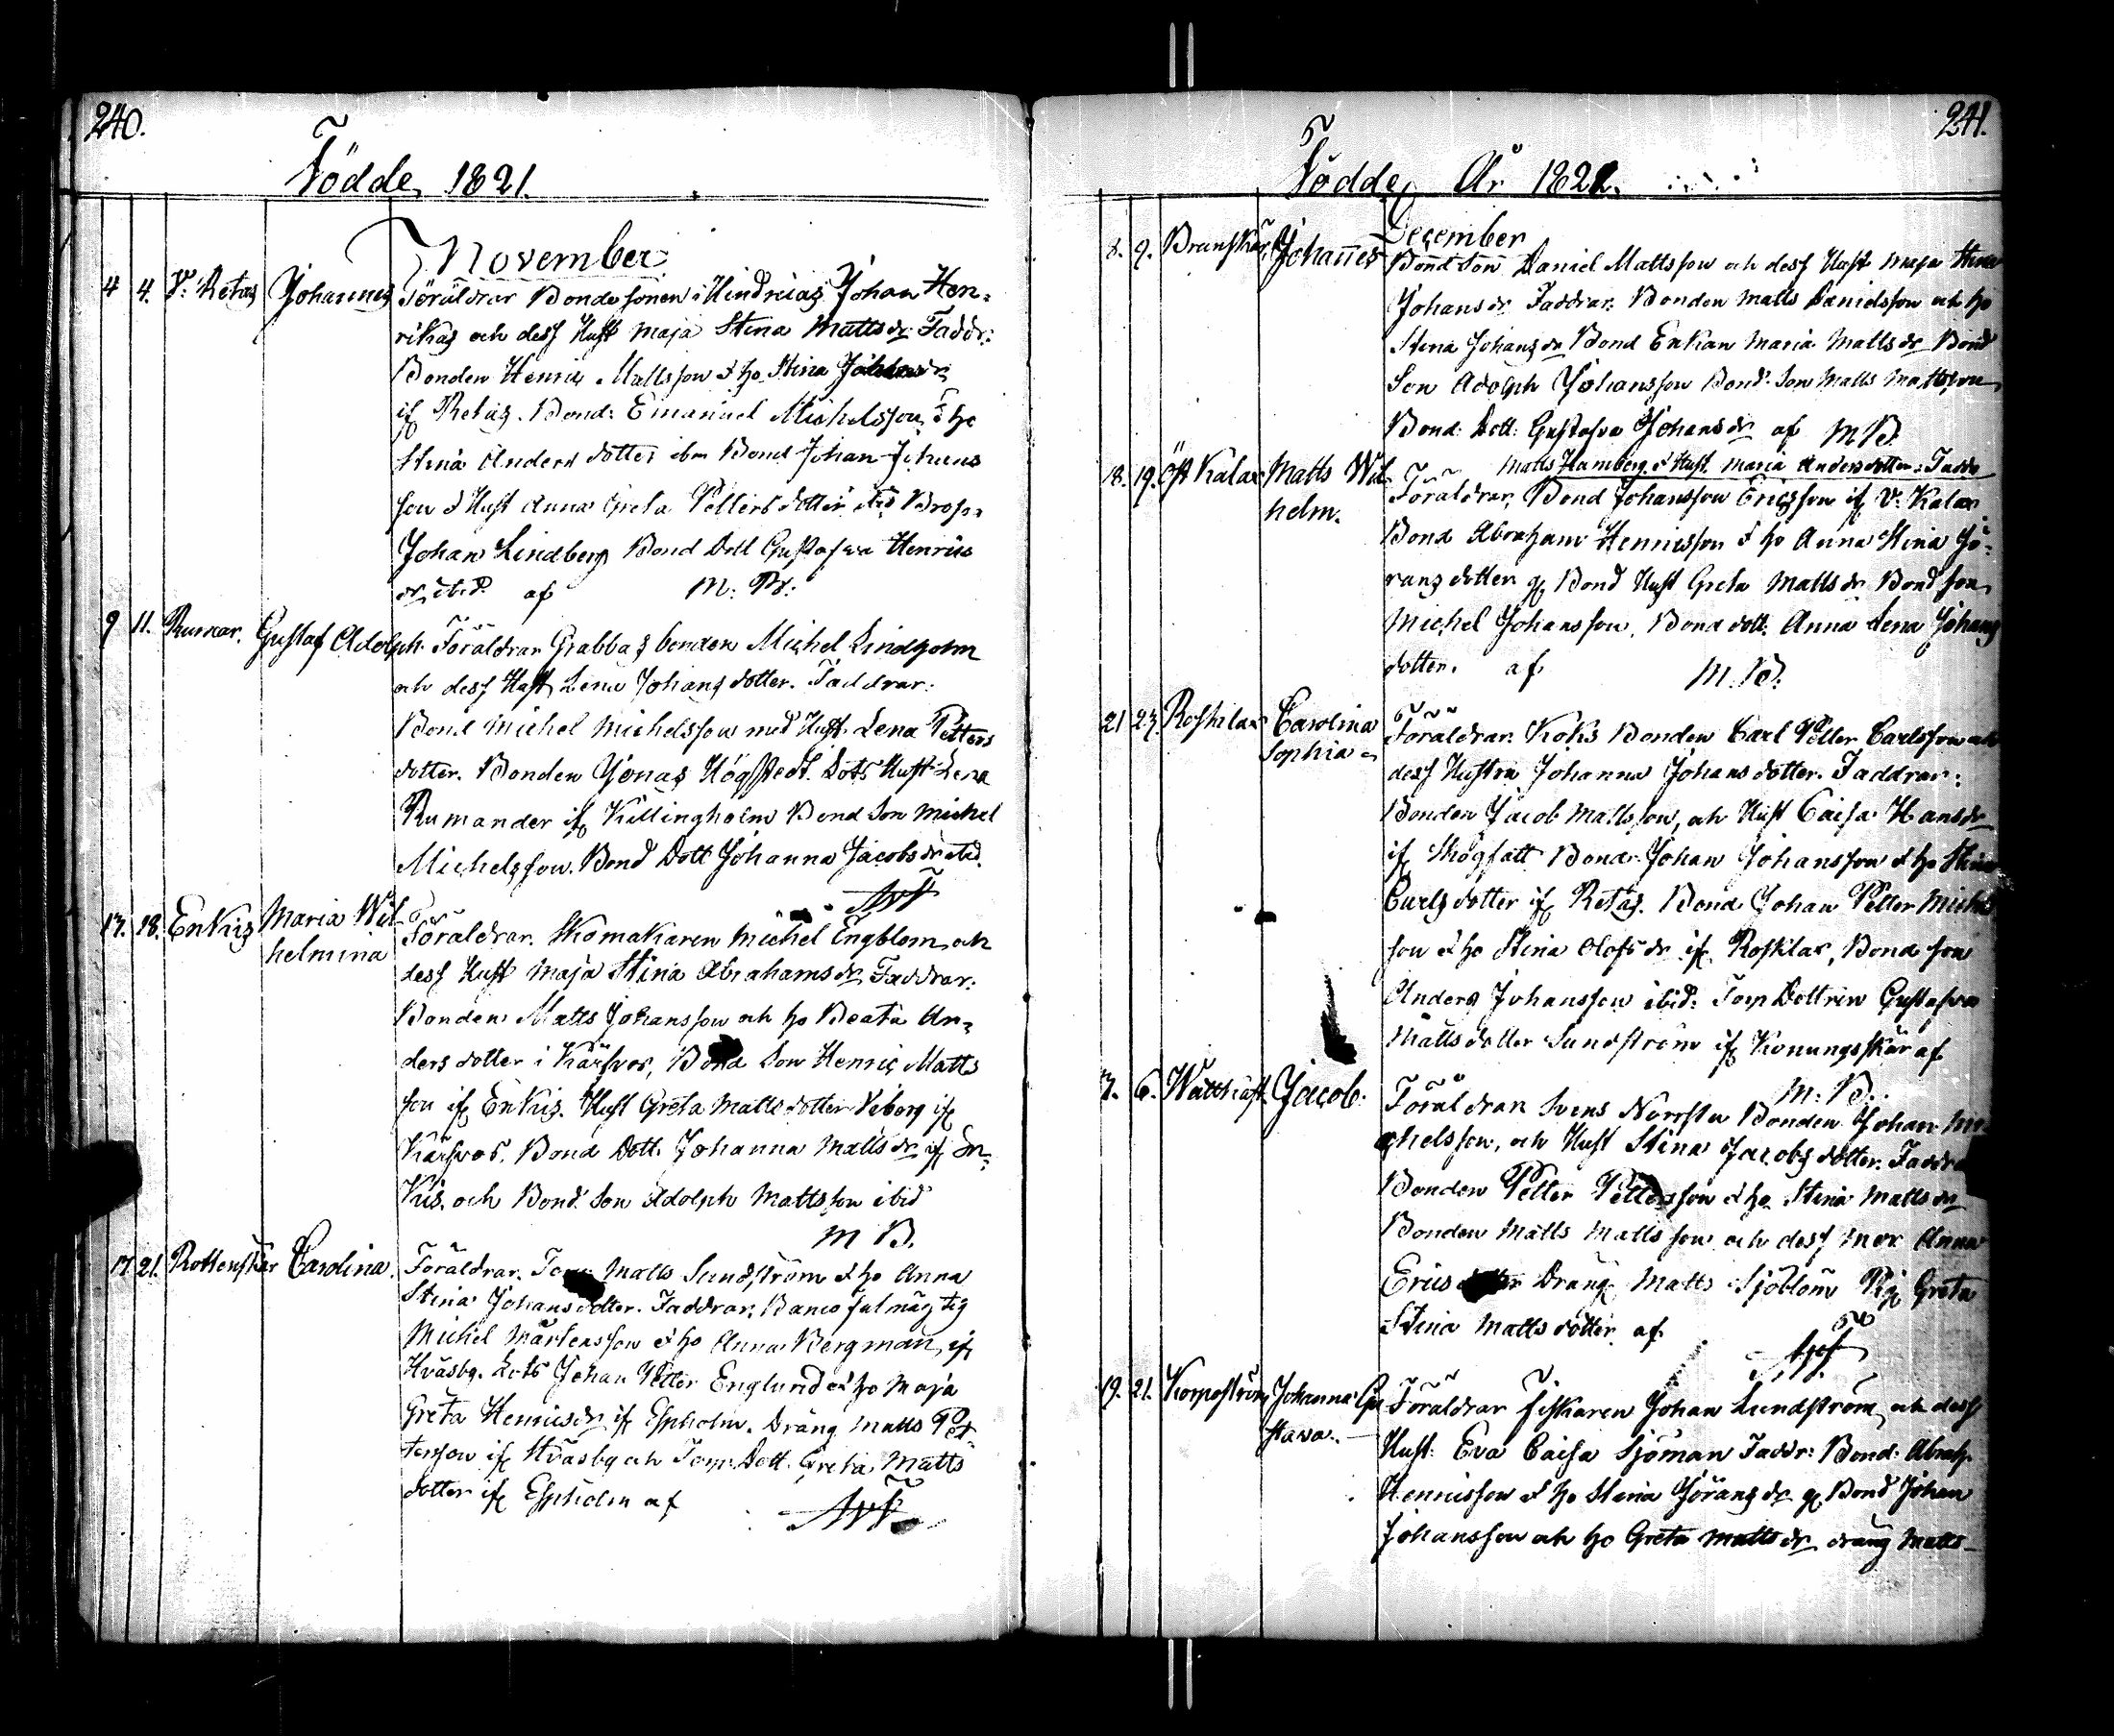 240.
Födde 1821.
November
4 4. V: Retas Johannes Föräldrar Bonde sonen i Hindricas Johan Hen-
rikas och dess Hust Maja Stina Mattsdr Faddr:
Bonden Henric Mattsson & ho Stina
if Retas. Bond: Emanuel Michelsson & ho
Stina Anders dotter ibm Bond Johan Johans
son & Hust Anna Greta Petters dotter ibid
Johan Lindberg Bond Dott Gustafwa Henrics
dr ibid. af M: B:
9 11. Rumar. Gustaf Adolph. Föräldrar Grabbas bonden Michel Lindholm
och dess Hust Lena Johans dotter. Faddrar:
Bond Michel Michelsson med Hust. Lena Petters
dotter. Bonden Jonas Högstedt. Lots Hust Lena
Rumander if Killingholm Bond Son Michel
Michelsson. Bond Dott Johanna Jacobsdr ibid.
17. 18. Enkis Maria Wil- Föräldrar. Skomakaren Michel Engblom och
helmina dess Hust Maja Stina Abrahamsdr Faddrar.
Bonden Matts Johansson och ho Beata An-
ders dotter i Kärfvos, Bond Son Henric Matts
son if Enkis. Hust Greta Matts dotter Viborg if
Kärfvos. Bond Dott. Johanna Mattsdr if En-
kis. och Bond. Son Adolph Mattsson ibid
M B.
17. 21. Rottenskär Carolina. Föräldrar. Matts Sundström & ho Anna
Stina Johans dotter. Faddrar:
Michel Mårtensson & ho Anna Bergman, if
Hväsby. Lots Johan Petter Englund & ho Maja
Greta Henricsdr if Espholm. Dräng Matts Pet-
tersson if Hväsby och Torp: Dott. Greta Matts
dotter if Espholm af
241.
Födde År 1821.
December
8. 9. Brunskär Johannes Bond Son Daniel Mattsson och dess Hust Maja Stina
Johansdr Faddrar: Bonden Matts Danielsson och ho
Stina Johansdr Bond Enkan Maria Mattsdr Bond
Son Adolph Johansson Bond: Son Matts Mattsson
Bond: Dott: Gustafva Johansdr af M B.
Matts Hamberg & Hust. Maria Andersdotter: Fadd
18. 19. Öst Kalax Matts Wil- Föräldrar, Bond Johansson Ericsson if V: Kalax
helm. Bond Abraham Henricsson & ho Anna Stina Jö-
rans dotter Bond Hust Greta Mattsdr Bond son
Michel Johansson. Bond dott: Anna Lena Johans
dotter. af M. B.
21 23. Rosklax Carolina Föräldrar. Kocks Bonden Carl Petter Carlsson och
Sophia dess Hustru Johanna Johans dotter. Faddrar:
Bonden Jacob Mattsson, och Hust Caisa Hansdr
if Skogsatt Bond: Johan Johansson & ho Stina
Carls dotter if Retas. Bond Johan Petter Michels
son & ho Stina Olofsdr if Rosklax, Bond son
Anders Johansson ibid: Torp Dottren Gustafva
Matts dotter Sundström if Konungsskär af
M. B.
3. 6. Wattkast Jacob. Föräldrar Svens Norrsta Bonden Johan Mi-
chelsson, och Hust Stina Jacobs dotter. Faddr
Bonden Petter Pettersson & ho Stina Mattsdr
Bonden Matts Mattsson och dess Mor Anna
Erics dotter Dräng Matts Sjöblom Pig Greta
Stina Matts dotter af
19. 21. Korpoström Johanna Gu Föräldrar Fiskaren Johan Lundström och dess
stava. Hust: Eva Caisa Sjöman Faddr: Bond: Abrah.
Henricsson & ho Stina Jöransdr Bond Johan
Johansson och ho Greta Mattsdr dräng Matts